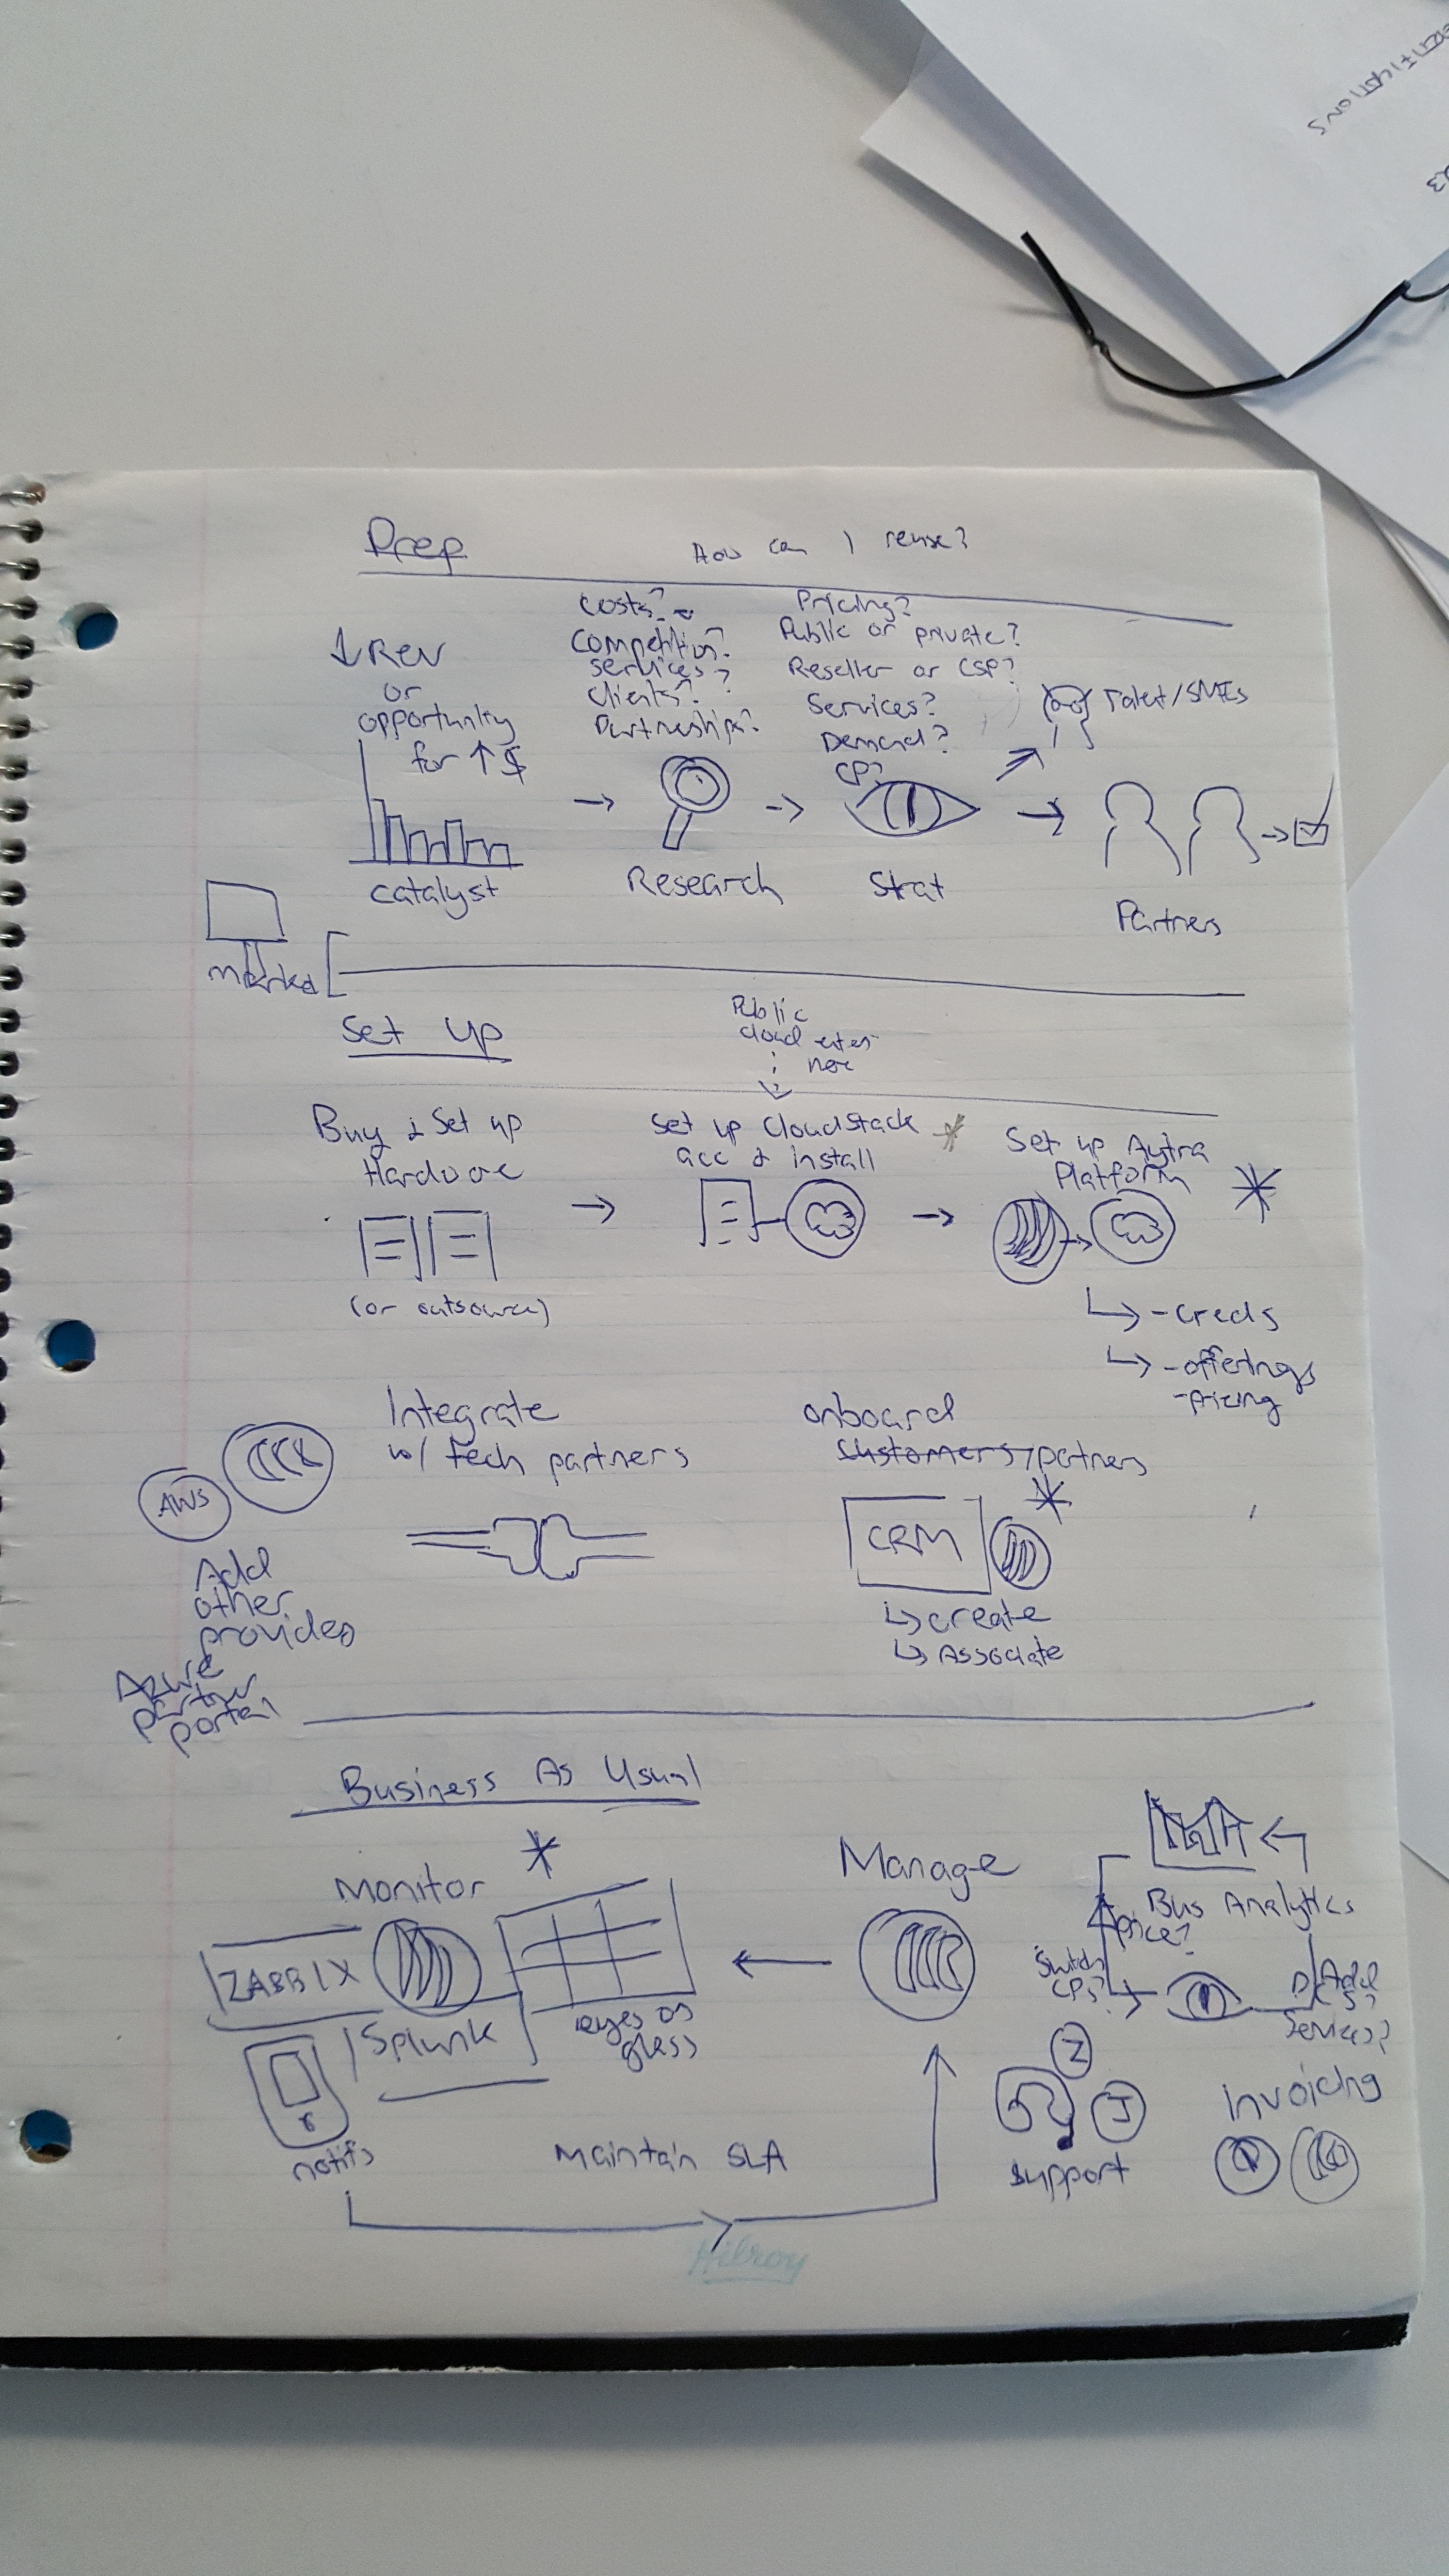 Prep
How can I reuse?
↓ Rev
or
opportunity
for ↑ $
catalyst
Costs?
Competition?
Services?
Clients?
Partnerships?
Research
Pricing?
Public or private?
Reseller or CSP?
Services?
Demand?
CP?
Strat
Talent/SMEs
Partners
Set up
Public
cloud enter
here
Buy & Set up
Hardware
(or outsource)
Set up Cloudstack *
acc & install
Set up
Platform
*
- creds
- offerings
- pricing
AWS
Add
other
provides
Azure
partner
portal
Integrate
w/ tech partners
onboard
customers/partners
*
CRM
create
Associate
Business As Usual
Monitor
*
ZABBIX
Splunk
eyes on
glass
notifs
Maintain SLA
Manage
Bus Analytics
Price?
Switch
CPs?
Add
Services?
Z
J
Support
Invoicing
Hilroy